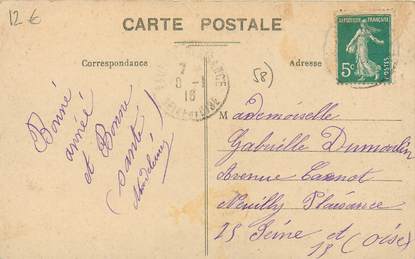 12 €
CARTE POSTALE
Correspondance
Adresse
58
RÉPUBLIQUE FRANÇAISE
5c
POSTES
7
8 - 1
16
Bonne
année
et Bonne
santé
Mademoiselle
Gabrielle Dumoulin
Avenue Carnot
Neuilly Plaisance
Seine et
(oise)